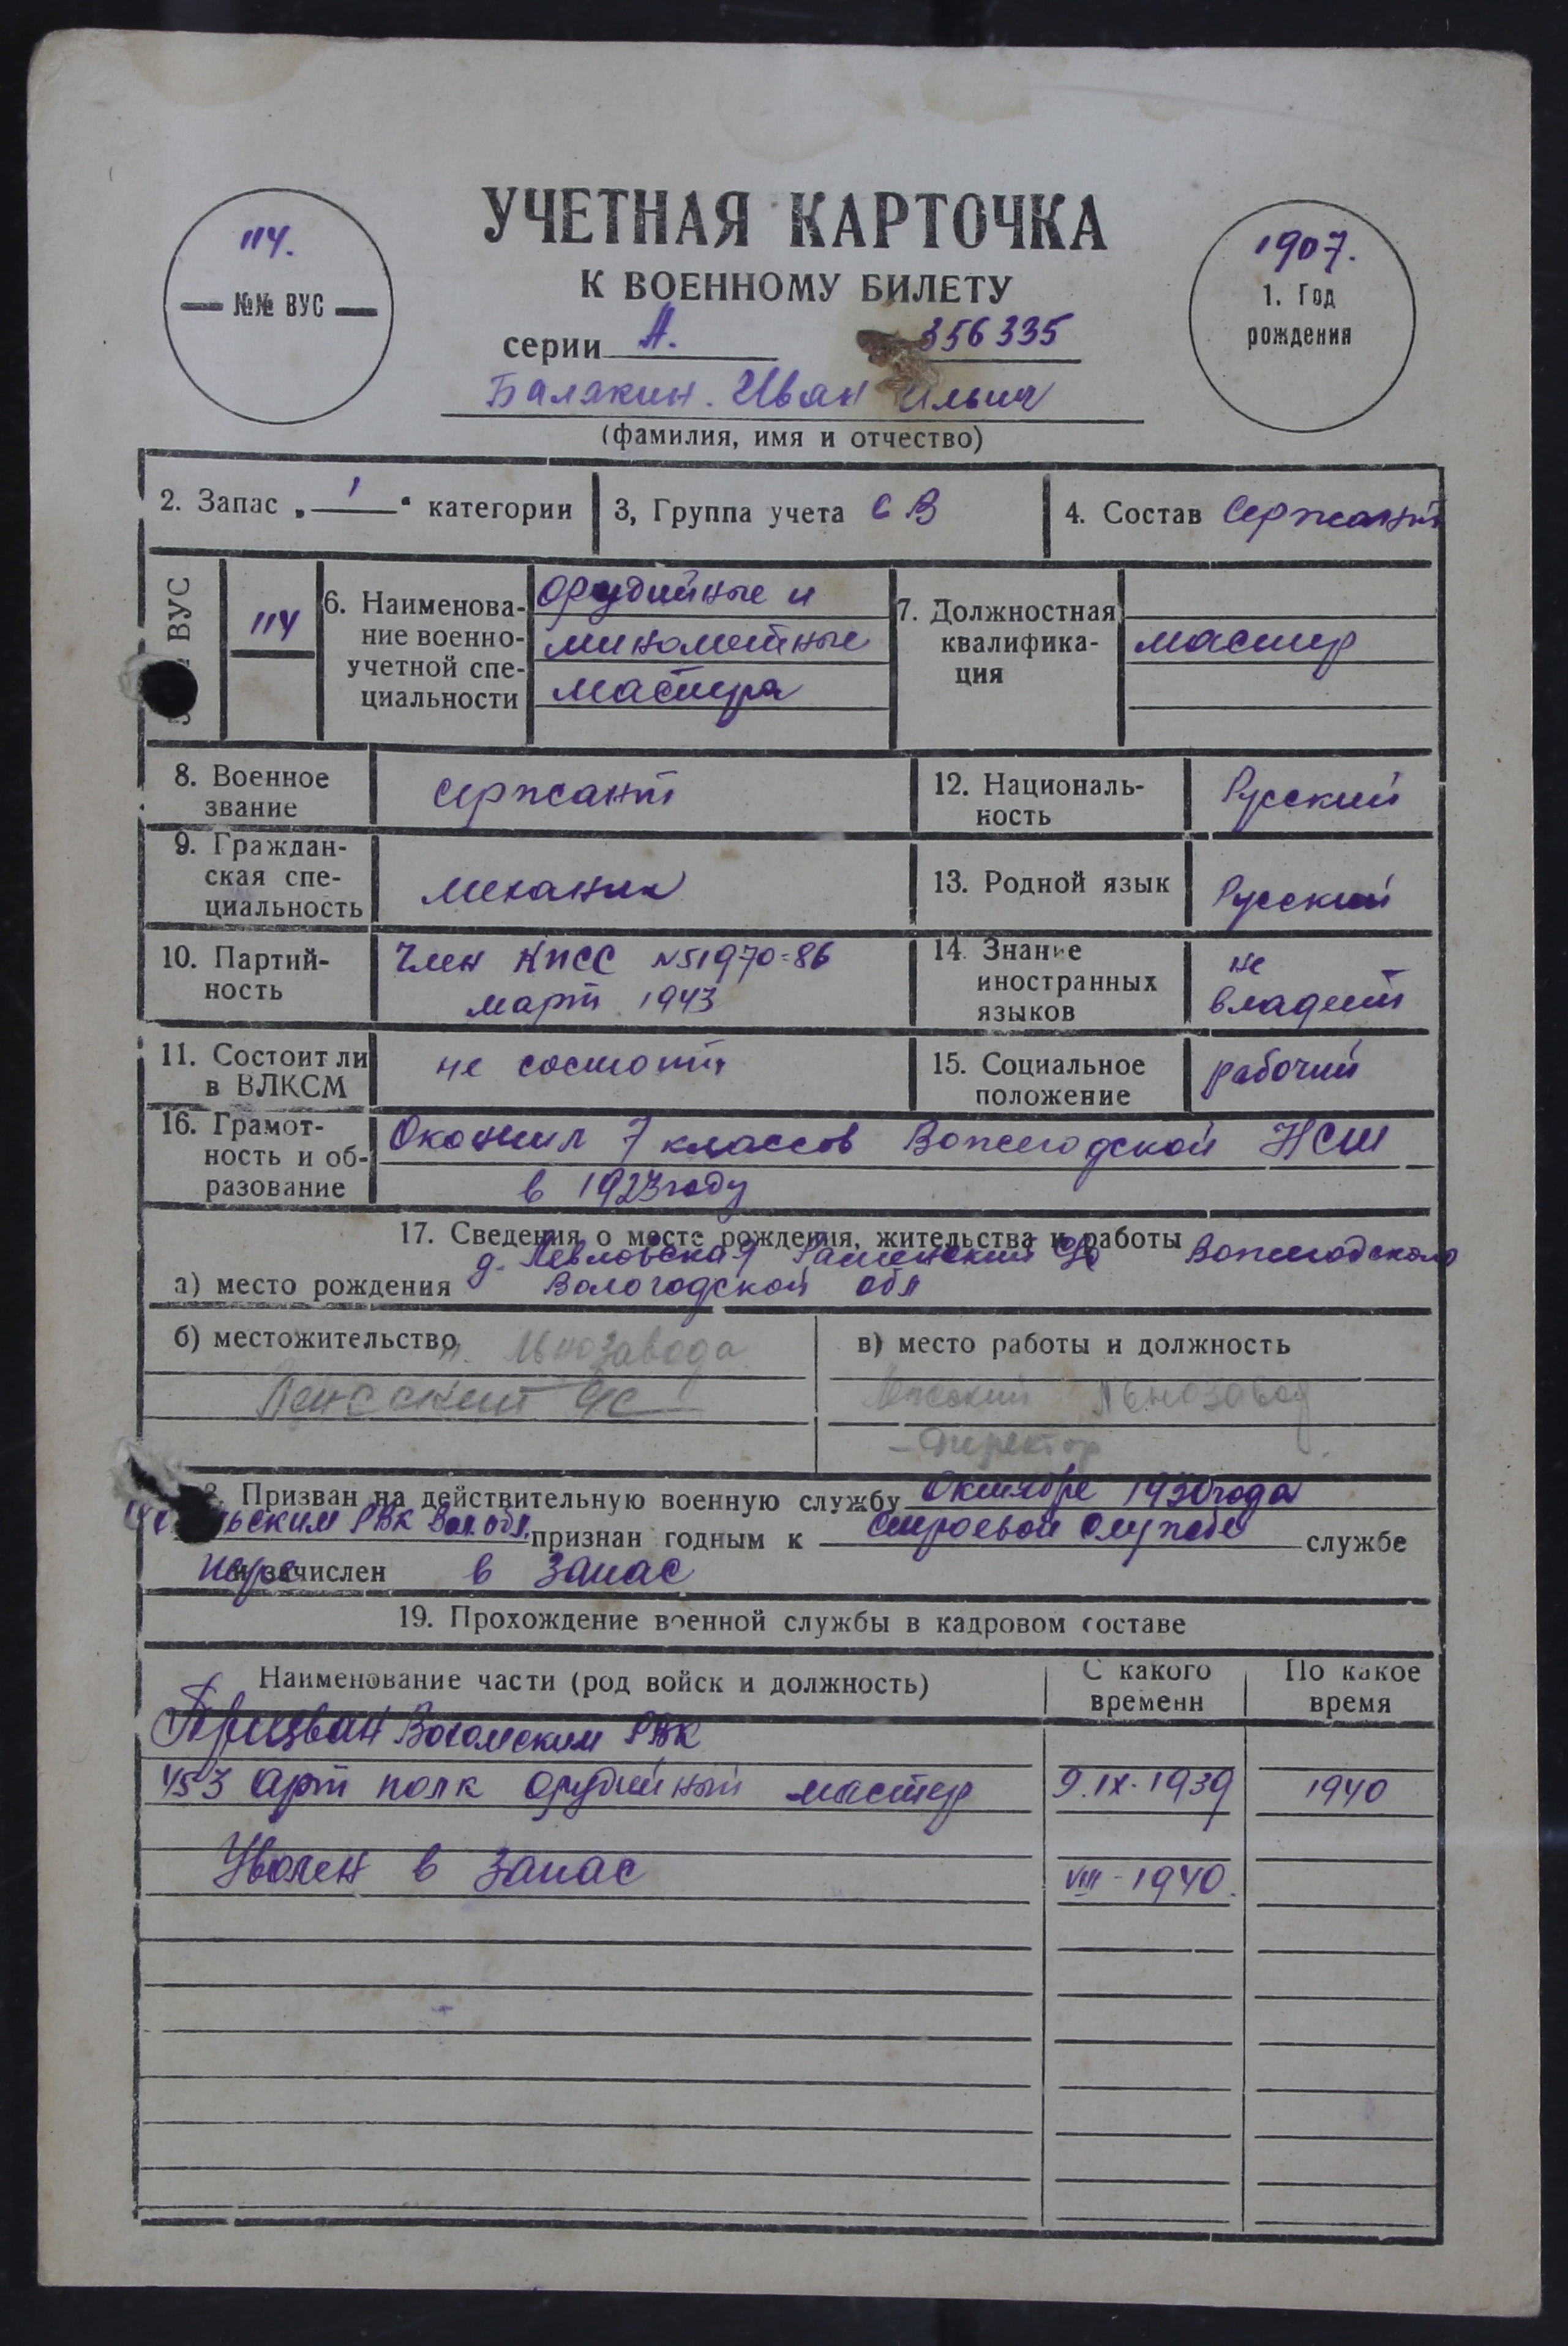 УЧЕТНАЯ КАРТОЧКА
К ВОЕННОМУ БИЛЕТУ
114.
№№ ВУС
1907.
1. Год
рождения
серии А. 356335
Балякин. Иван Ильич
(фамилия, имя и отчество)
2. Запас „ 1 “ категории
3, Группа учета СВ
4. Состав Сержант
ВУС
114
6. Наименова-
ние военно-
учетной спе-
циальности
орудийные и
минометные
мастера
7. Должностная
квалифика-
ция
мастер
8. Военное
звание
сержант
12. Националь-
ность
Русский
9. Граждан-
ская спе-
циальность
механик
13. Родной язык
Русский
10. Партий-
ность
Член КПСС №51970=86
март 1943
14. Знание
иностранных
языков
не
владеет
11. Состоит ли
в ВЛКСМ
не состоит
15. Социальное
положение
рабочий
16. Грамот-
ность и об-
разование
Окончил 7 классов Вожегодской НСШ
в 1923 году
17. Сведения о месте рождения, жительства и работы
д. Вожегодского
а) место рождения Вологодской обл
б) местожительство п. Льнозавода
в) место работы и должность
Льнозавод
- Директор
Призван на действительную военную службу Октябре 1930 года
РВК Вол. обл. признан годным к строевой службе службе
и зачислен в запас
19. Прохождение военной службы в кадровом составе
Наименование части (род войск и должность)
С какого
времени
По какое
время
Призван Вохомским РВК
453 арт полк орудийный мастер 9.IX.1939 1940
Уволен в запас VIII-1940.